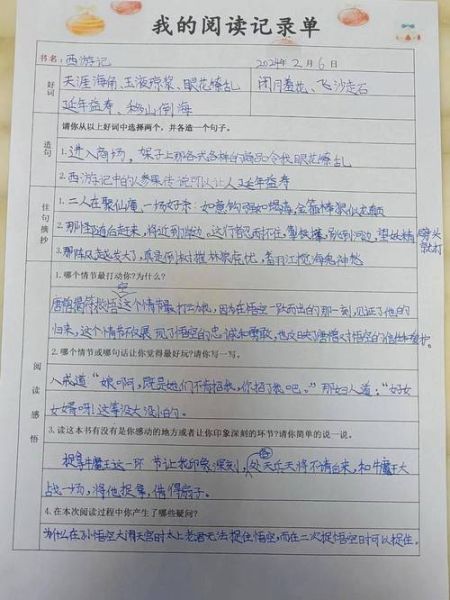 我的阅读记录单
书名：西游记
2024年2月6日
好词
天涯海角、玉液琼浆、眼花缭乱
闭月羞花、飞沙走石
延年益寿、移山倒海
造句
请你从以上好词中选择两个，并各造一个句子。
1.进入商场，架子上那各式各样的商品令我眼花缭乱
2.西游记中的人参果传说可以让人延年益寿
佳句摘抄
1.二人在聚仙庵一场好杀：如意钩
2.那怪随后赶来，将近到
3.那阵风
阅读感悟
1.哪个情节最打动你？为什么？
唐僧 悟空这个情节最打动我，因为在悟空一跃而出的那一刻，见证了他的
归来，这个情节 展现了孙悟空的忠诚和勇敢，也 了唐僧对悟空的
2.哪个情节或哪句话让你觉得最好玩？请你写一写。
八戒道“娘啊，既是她们不肯招我，你招了我吧。”那妇人道：“好女
女婿呀！这等没大没小的。
3.读这本书有没有是你感动的地方或者让你印象深刻的环节？请你简单的说一说。
捉拿牛魔王这一环节让我印象深刻， 天兵天将不请自来，和牛魔王大
战一场，将他捉拿，借得扇子。
4.在本次阅读过程中你产生了哪些疑问？
为什么在孙悟空大闹天宫时太上老君无法捉住悟空，而在二次捉悟空时可以捉住。